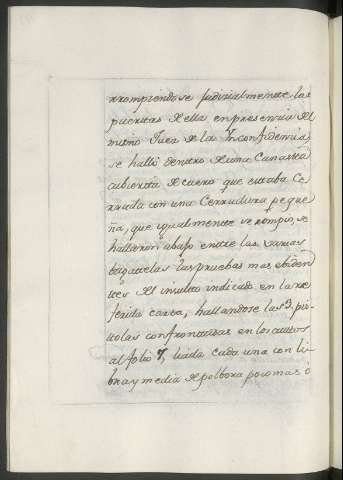 rrompiendose judicialmente las
puertas de ella en presencia del
mismo Juez de la Inconfidencia
se halló dentro de una Canasta
cubierta de cuero que estaba Ce-
rrada con una Cerradura peque
ña, que igualmente se rompio, se
hallaron abajo entre las varias
bagatelas las pruebas mas ebiden
tes del insulto indicado en la re
ferida carta, hallandose las 3. pis-
tolas confrontadas en los autos
al folio 7, liada cada una con li-
bra y media de polbora poco mas o